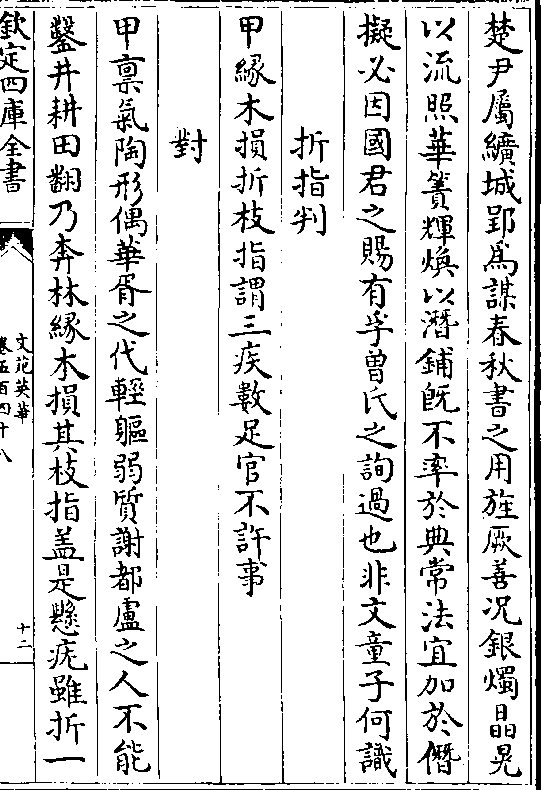 楚尹屬纊城郢爲謀春秋書之用旌厥善况銀燭晶晃
以流照華簀輝煥以潛鋪既不率於典常法宜加於僭
擬必因國君之賜有乎曾氏之詢過也非文童子何識
折指判
甲緣木損折枝指謂三疾數足官不許事
對
甲禀氣陶形偶華胥之代輕軀弱質謝都盧之人不能
鑿井耕田翻乃奔林緣木損其枝指盖是懸疣雖折一
欽定四庫全書
文苑英華
卷五百四十八
十二